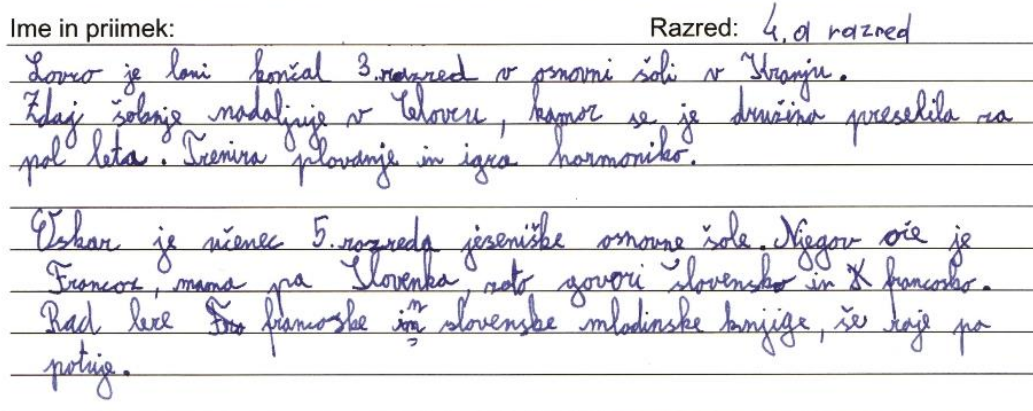 Ime in priimek: Razred: 4. a razred
Lovro je lani končal 3. razred v osnovni šoli v Kranju.
Zdaj šolanje nadaljuje v Celovcu, kamor se je družina preselila za
pol leta. Trenira plavanje in igra harmoniko.
Oskar je učenec 5. razreda jeseniške osnovne šole. Njegov oče je
Francoz, mama pa Slovenka, zato govori slovensko in francosko.
Rad bere francoske in slovenske mladinske knjige, še raje pa
potuje.